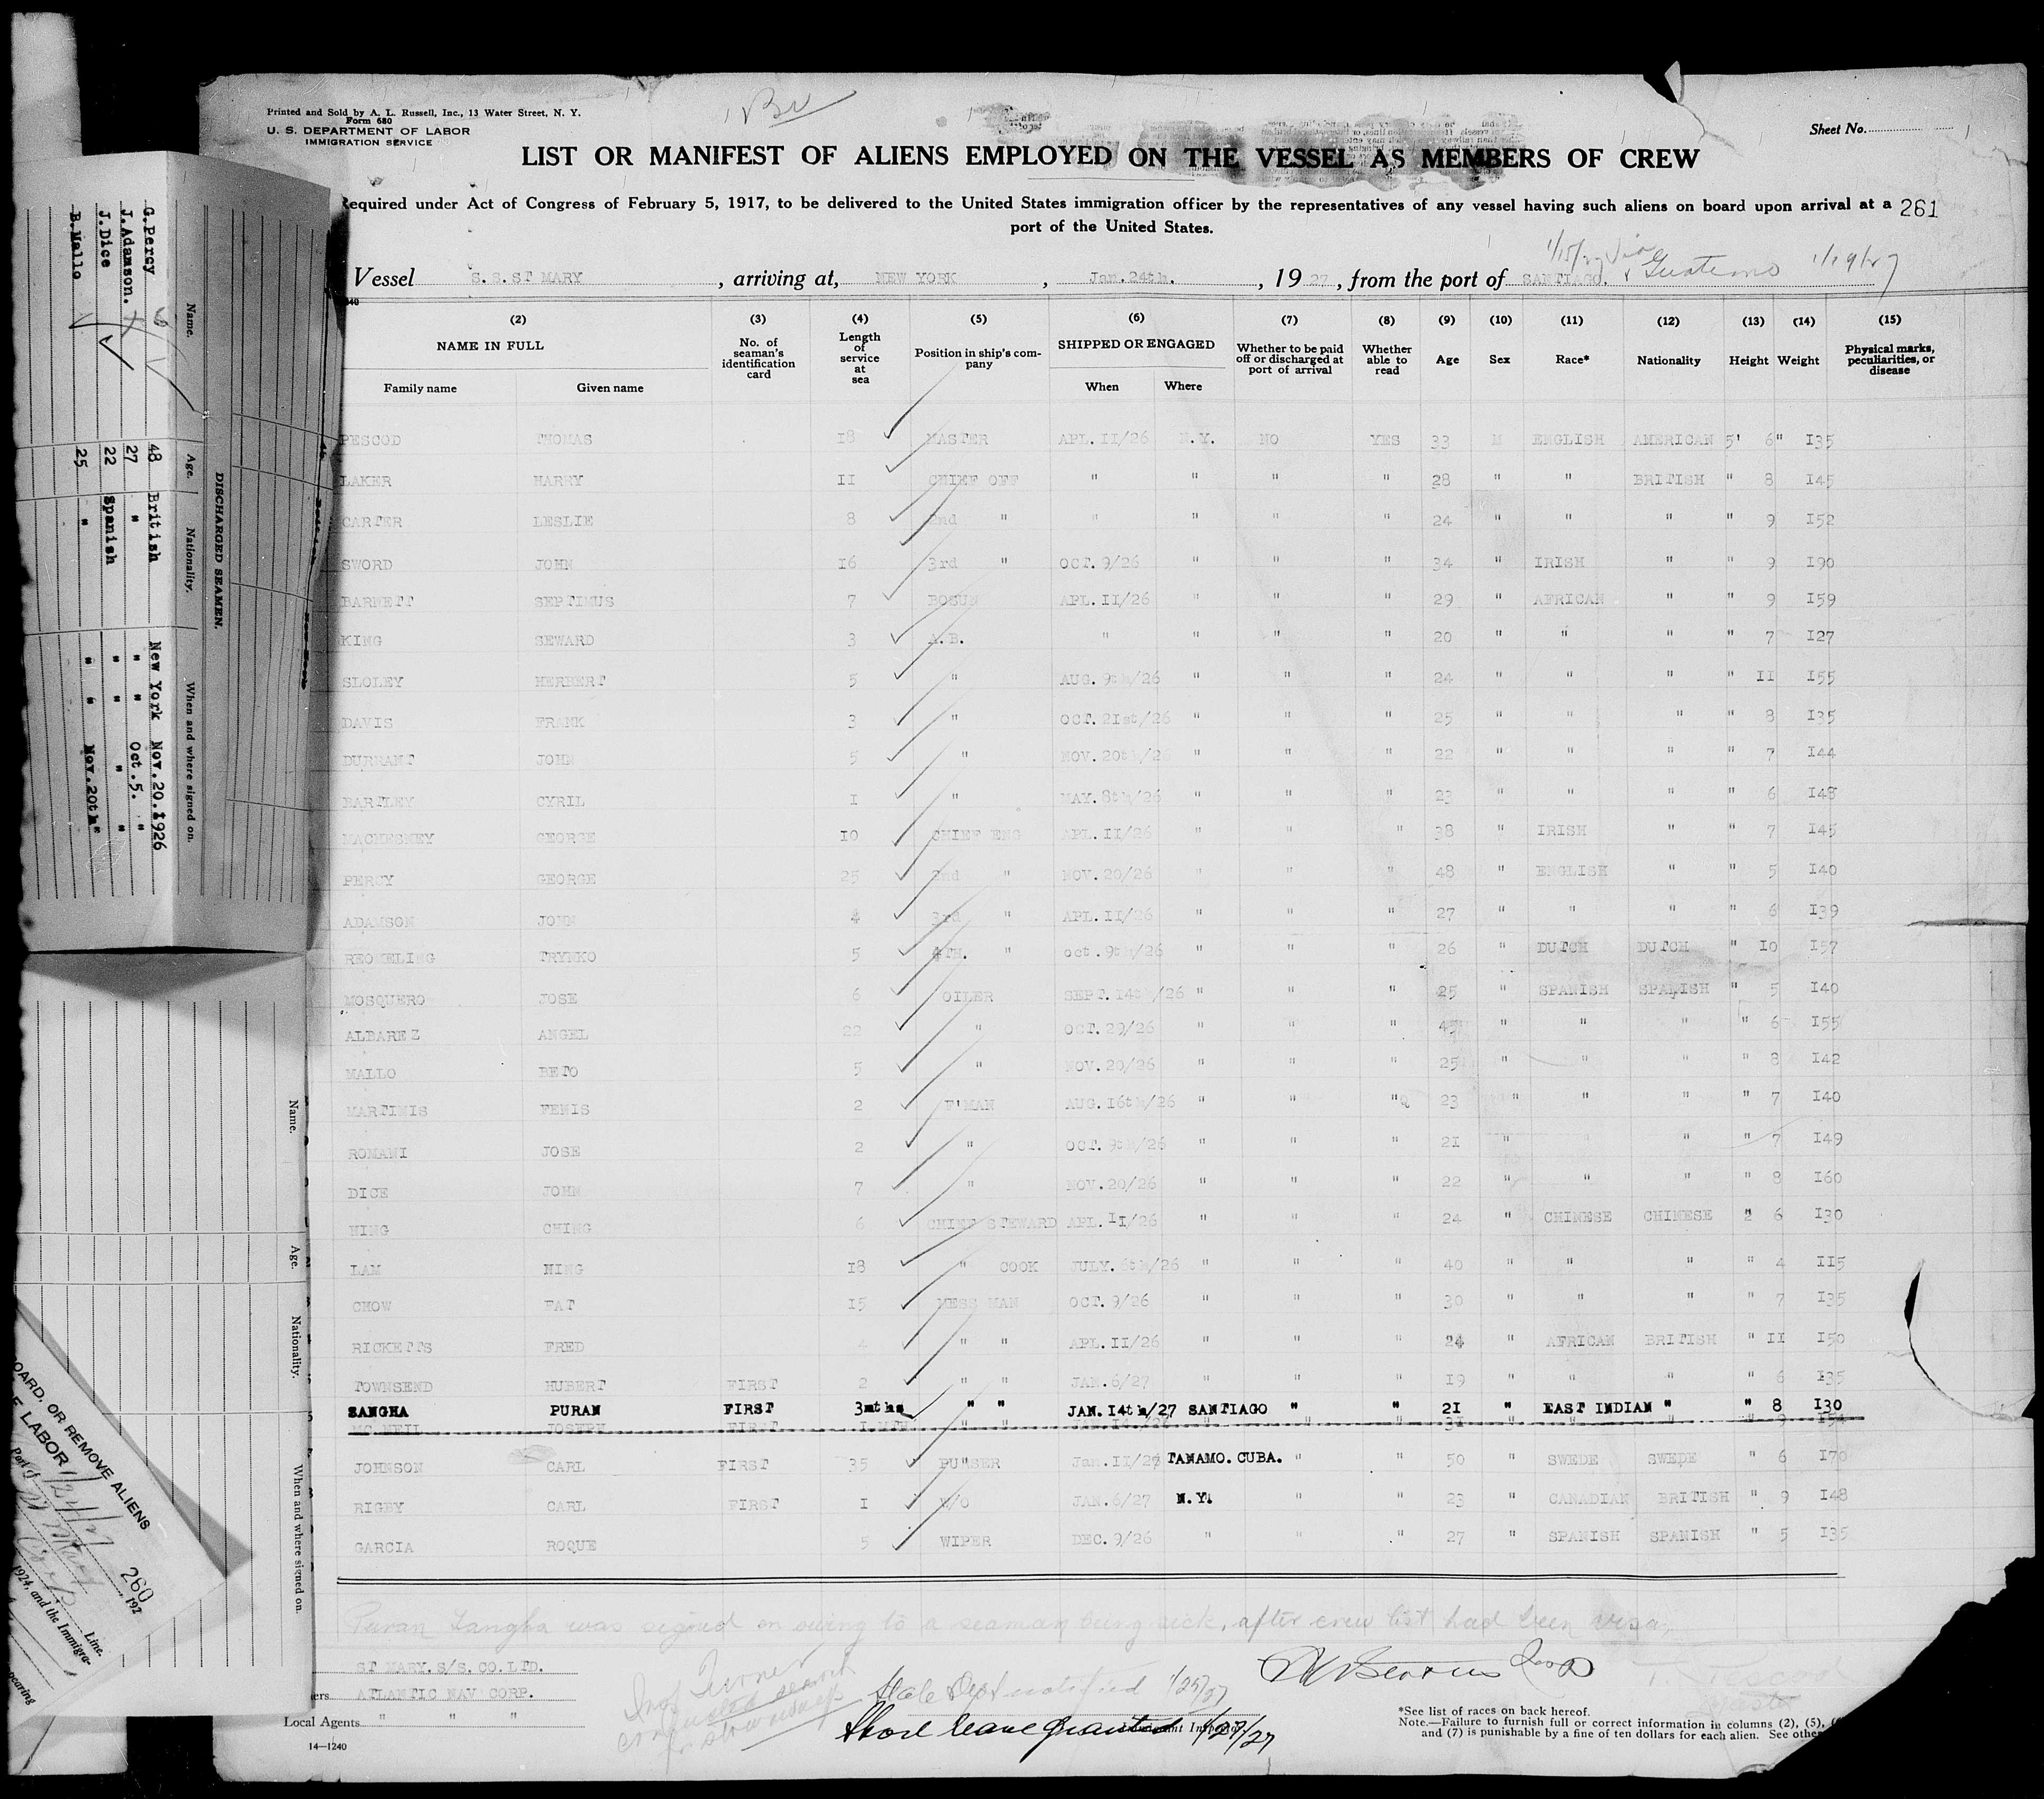 Printed and Sold by A. L. Russell, Inc., 13 Water Street, N. Y.
Form 680
U. S. DEPARTMENT OF LABOR
IMMIGRATION SERVICE
Sheet No.
LIST OR MANIFEST OF ALIENS EMPLOYED ON THE VESSEL AS MEMBERS OF CREW
Required under Act of Congress of February 5, 1917, to be delivered to the United States immigration officer by the representatives of any vessel having such aliens on board upon arrival at a
port of the United States.
261
1/15/27 Via
Vessel S.S.ST MARY , arriving at, NEW YORK , Jan.24th. , 19 27 , from the port of SANTIAGO. 1/19/27
(2) (3) (4) (5) (6) (7) (8) (9) (10) (11) (12) (13) (14) (15)
NAME IN FULL No. of seaman's identification card Length of service at sea Position in ship's company SHIPPED OR ENGAGED Whether to be paid off or discharged at port of arrival Whether able to read Age Sex Race* Nationality Height Weight Physical marks, peculiarities, or disease
Family name Given name When Where
PESCOD THOMAS 18 MASTER APL. II/26 N.Y. NO YES 33 M ENGLISH AMERICAN 5' 6" I35
LAKER HARRY II CHIEF OFF " " " " 28 " " BRITISH " 8 I45
CARTER LESLIE 8 2nd " " " " " 24 " " " " 9 I52
SWORD JOHN I6 3rd " OCT. 9/26 " " " 34 " IRISH " " 9 I90
BARNETT SEPTIMUS 7 BOSUN APL. II/26 " " " 29 " AFRICAN " " 9 I59
KING SEWARD 3 A.B. " " " " 20 " " " " 7 I27
SLOLEY HERBERT 5 " AUG. 9th/26 " " " 24 " " " " II I55
DAVIS FRANK 3 " OCT. 2Ist/26 " " " 25 " " " " 8 I35
DURRANT JOHN 5 " NOV. 20th/26 " " " 22 " " " " 7 I44
BARTLEY CYRIL I " MAY. 8th/26 " " " 23 " " " " 6 I48
MACHESNEY GEORGE IO CHIEF ENG APL. II/26 " " " 38 " IRISH " " 7 I45
PERCY GEORGE 25 2nd " NOV. 20/26 " " " 48 " ENGLISH " " 5 I40
ADAMSON JOHN 4 3rd " APL. II/26 " " " 27 " " " " 6 I39
REOMELING TRYNKO 5 4TH. " oct. 9th/26 " " " 26 " DUTCH DUTCH " IO I57
MOSQUERO JOSE 6 OILER SEPT. I4th/26 " " " 25 " SPANISH SPANISH " 5 I40
ALBAREZ ANGEL 22 " OCT. 29/26 " " " 45 " " " " 6 I55
MALLO BETO 5 " NOV. 20/26 " " " 25 " " " " 8 I42
MARTINIS FENIS 2 F'MAN AUG. I6th/26 " " " 23 " " " " 7 I40
ROMANI JOSE 2 " OCT. 9th/26 " " " 2I " " " 7 I49
DICE JOHN 7 " NOV. 20/26 " " " 22 " " " " 8 I60
WING CHING 6 CHIEF STEWARD APL. II/26 " " " 24 " CHINESE CHINESE " 6 I30
LAM NING I8 " COOK JULY. 6th/26 " " " 40 " " " " 4 II5
CHOW FAT I5 MESS MAN OCT. 9/26 " " " 30 " " " " 7 I35
RICKETTS FRED 4 " " APL. II/26 " " " 24 " AFRICAN BRITISH " II I50
TOWNSEND HUBERT FIRST 2 " " JAN. 6/27 " " " I9 " " " " 6 I35
SANGHA PURAN FIRST 3mths " " JAN. I4th/27 SANTIAGO " " 2I " EAST INDIAN " " 8 I30
MC NEIL JOSEPH FIRST I MTH " " JAN. I4th/27 " " " 3I " " " " 9 I54
JOHNSON CARL FIRST 35 PURSER Jan. II/27 TANAMO. CUBA. " " 50 " SWEDE SWEDE " 6 I70
RIGBY CARL FIRST I W/O JAN. 6/27 N.Y. " " 23 " CANADIAN BRITISH " 9 I48
GARCIA ROQUE 5 WIPER DEC. 9/26 " " " 27 " SPANISH SPANISH " 5 I35
Puran Sangha was signed on owing to a seaman being sick, after crew list had been visa,
ST MARY. S/S. CO. LTD.
ers ATLANTIC NAV CORP.
Local Agents " " "
14—1240
State Dept notified 1/25/27
Shore leave granted 1/27/27
*See list of races on back hereof.
Note.—Failure to furnish full or correct information in columns (2), (5),
and (7) is punishable by a fine of ten dollars for each alien. See other
DISCHARGED SEAMEN.
Name. Age. Nationality. When and where signed on.
G.Percy 48 British New York Nov.20.I926
J.Adamson. 27 " " " Oct.5. "
J.Dice 22 Spanish " " " "
B.Mallo 25 " " " Nov.20th"
Name. Age. Nationality. When and where signed on.
OARD, OR REMOVE ALIENS
F LABOR 1/24/27
Port of
St Mary
260
192
Line.
1924, and the Immigra-
pearing